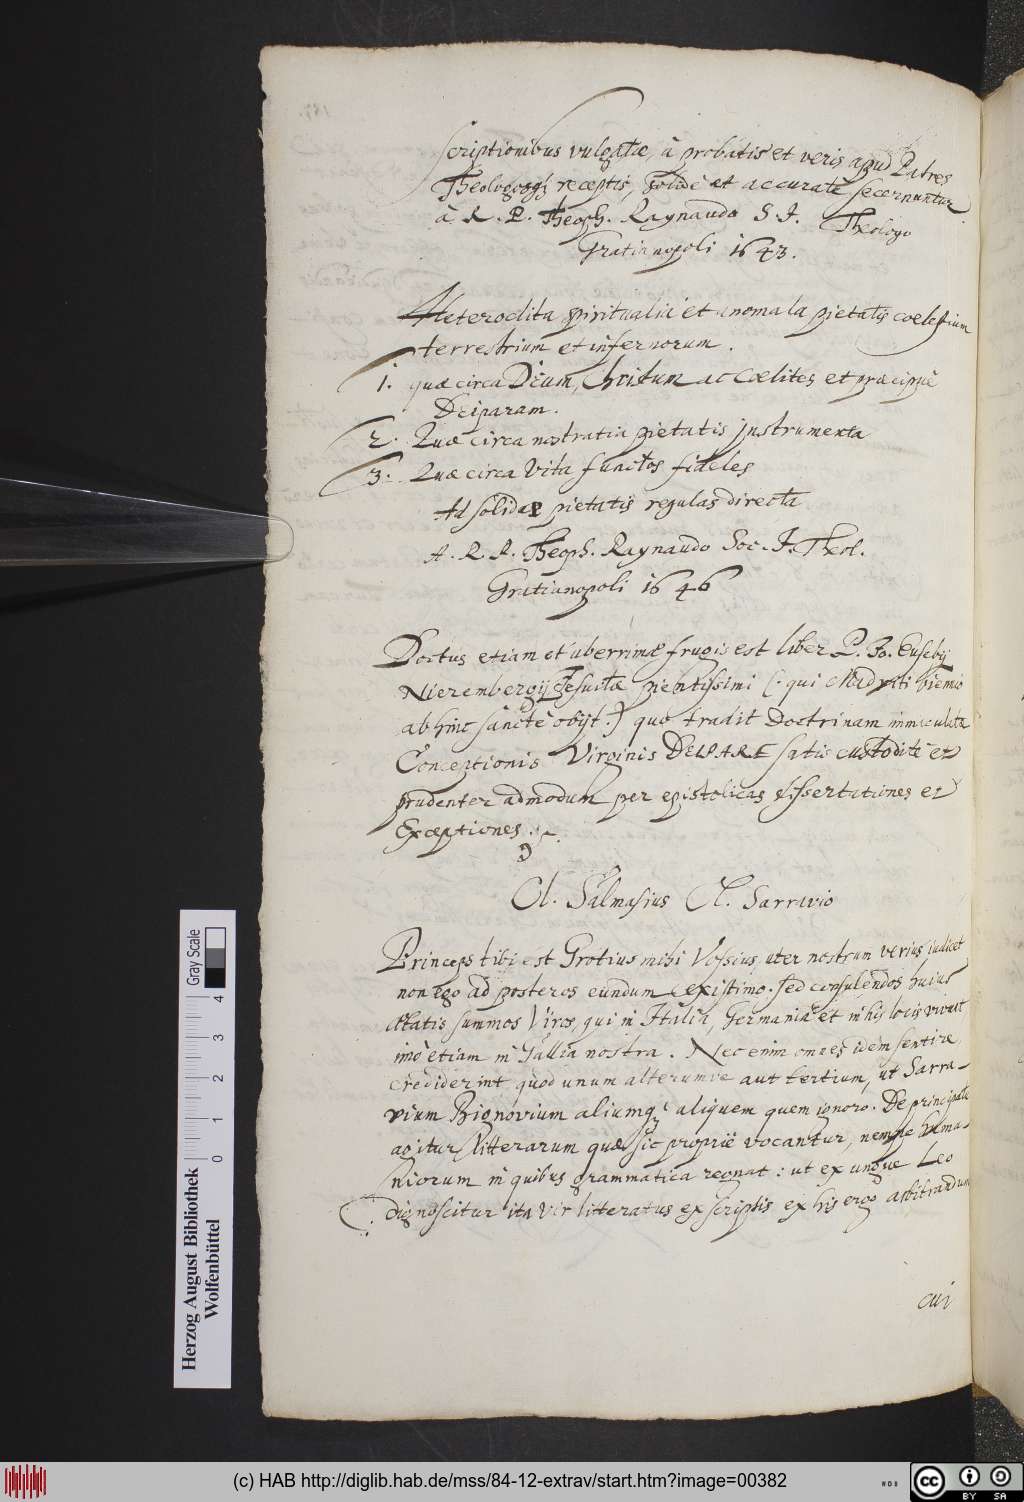 scriptionibus vulgatae, à probatis et veris apud Patres
Theologosq; receptis, solidè et accuratè secernuntur
à R. P. Theoph. Raynaudo S. J. Theologo
Gratianopoli 1643.
Heteroclita spiritualia et anomala pietatis coelestium
terrestrium et infernorum.
1. quae circa Deum, Christum ac Coelites et praecipuè
Deiparam.
2. Quae circa nostratia pietatis instrumenta
3. Quae circa Vita functos fideles
Ad solidae pietatis regulas directa
A. R. P. Theoph. Raynaudo Soc. J. Theol.
Gratianopoli 1646
Doctus etiam et uberrimae frugis est liber P. Jo. Eusebij
Nierembergij Jesuitae pientissimi (: qui Madriti biennio
ab hinc sanctè obijt :) quo tradit Doctrinam immaculatae
Conceptionis Virginis DEIPARE satis custodite et
prudenter admodum per epistolicas dissertationes et
Exceptiones.
Cl. Salmasius Cl. Sarravio
Princeps tibi est Grotius mihi Vossius, uter nostrum verius judicet
non ego ad posteros eundum existimo. sed consulendos huius
aetatis summos Viros, qui in Italia, Germania et in his locis vivunt
imò etiam in Gallia nostra. Nec enim omnes idem sentire
crediderint quod unum alterumve aut tertium, ut Sarra-
vium Bignovium aliumq; aliquem quem ignoro. De principatu
agitur litterarum quae sic propriè vocantur, nempe huma-
niorum in quibus grammatica regnat: ut ex ungue Leo
dignoscitur ita vir litteratus ex scriptis ex his ergo arbitrandum
cui
Herzog August Bibliothek
Wolfenbüttel
0 1 2 3 4
Gray Scale
(c) HAB http://diglib.hab.de/mss/84-12-extrav/start.htm?image=00382
cc BY SA